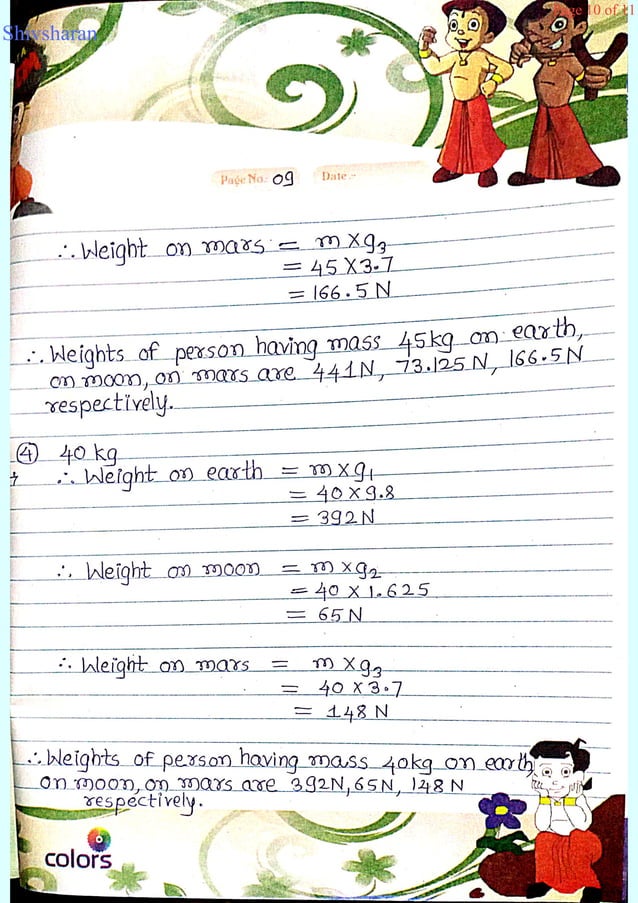 Page 10 of 11
Shivsharan
Page No.: 09 Date :-
∴ Weight on mars = m × g₃
= 45 × 3.7
= 166.5 N
∴ Weights of person having mass 45kg on earth,
on moon, on mars are 441N, 73.125 N, 166.5N
respectively.
④ 40 kg
∴ Weight on earth = m × g₁
= 40 × 9.8
= 392 N
∴ Weight on moon = m × g₂
= 40 × 1.625
= 65 N
∴ Weight on mars = m × g₃
= 40 × 3.7
= 148 N
∴ Weights of person having mass 40kg on earth
on moon, on mars are 392N, 65N, 148 N
respectively.
colors